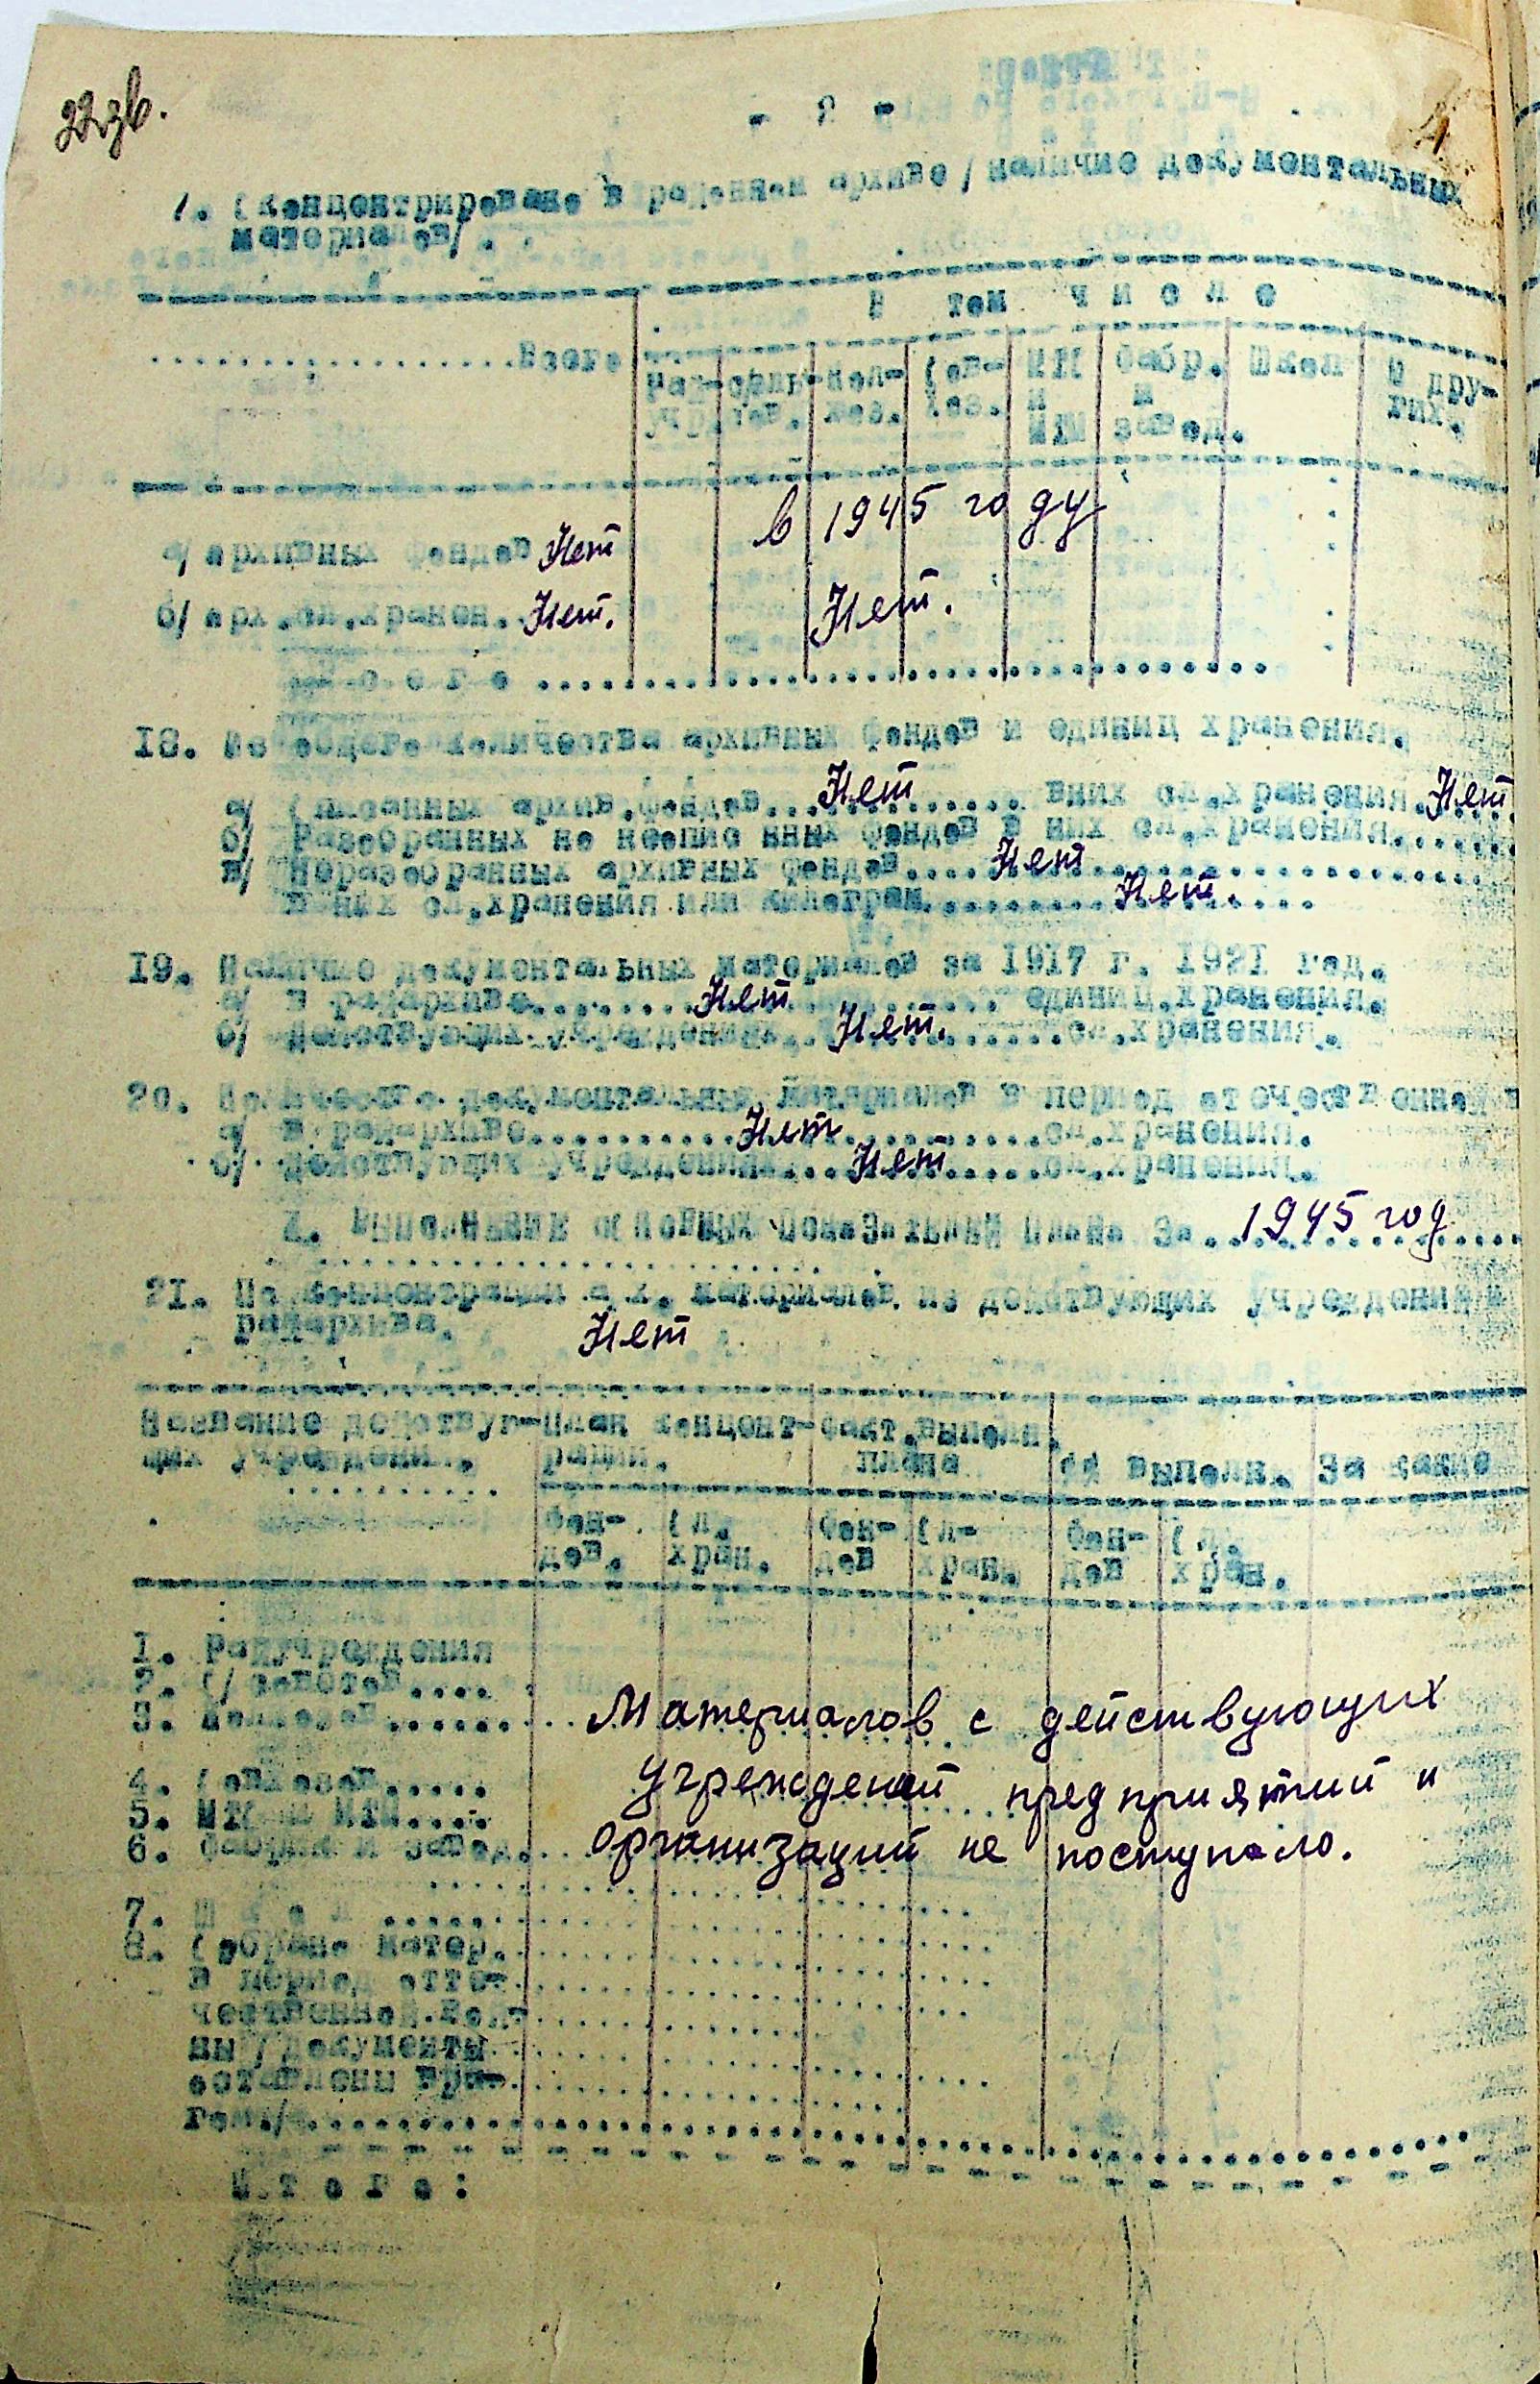 22 зв.
4
- 2 -
7. Сконцентрировано в районном архиве / наличие документальных
материалов/.
В том числе
Всего
Рай- Кол- Сов- Фабр. Школ И дру-
учр. хоз. хоз. и и гих.
МТМ завод.
в 1945 году
а/ архивных фондов Нет
б/ арх.ед.хранен. Нет. Нет.
18. Из общего количества архивных фондов и единиц хранения.
а/ Описанных архив.фондов... Нет ... вних ед.хранения. Нет
б/ Разобранных но неописанных фондов в них ед.хранения.......
в/ Неразобранных архивных фондов.... Нет
в них ед.хранения или килограм. Нет.
19. Наличие документальных материалов за 1917 г. 1921 год.
а/ в райархиве........ Нет ...... единиц.хранения.
б/ действующих учреждениях.. Нет. ......ед.хранения.
20. Количество документальных материалов в период отечественной в
а/ в райархиве.......... Нет ..........ед.хранения.
б/ действующих учреждениях.... Нет .....ед.хранения.
Х. Выполнение основных показателей плана за. 1945 год
21. По концентрации а.х. материалов из действующих учреждений в
райархива. Нет
Название действую- План концент- Факт.выполн.
щих учреждений. рации. плана %% выполн. За какие
Фон- Ед. Фон- Ед- Фон- Ед.
дов. хран. дов хран. дов хран.
1. Райучреждения
2. С/советов....
3. Колхозов...... Материалов с действующих
4. Совхозов.....
учреждений предприятий и
5. МТС и МТМ....
6. Фабрик и завод. организаций не поступало.
7. Школ ......
8. Собрано матер.
в период оте-
чественной вой-
ны /документы
оставлены вра-
гом/.
Итого: